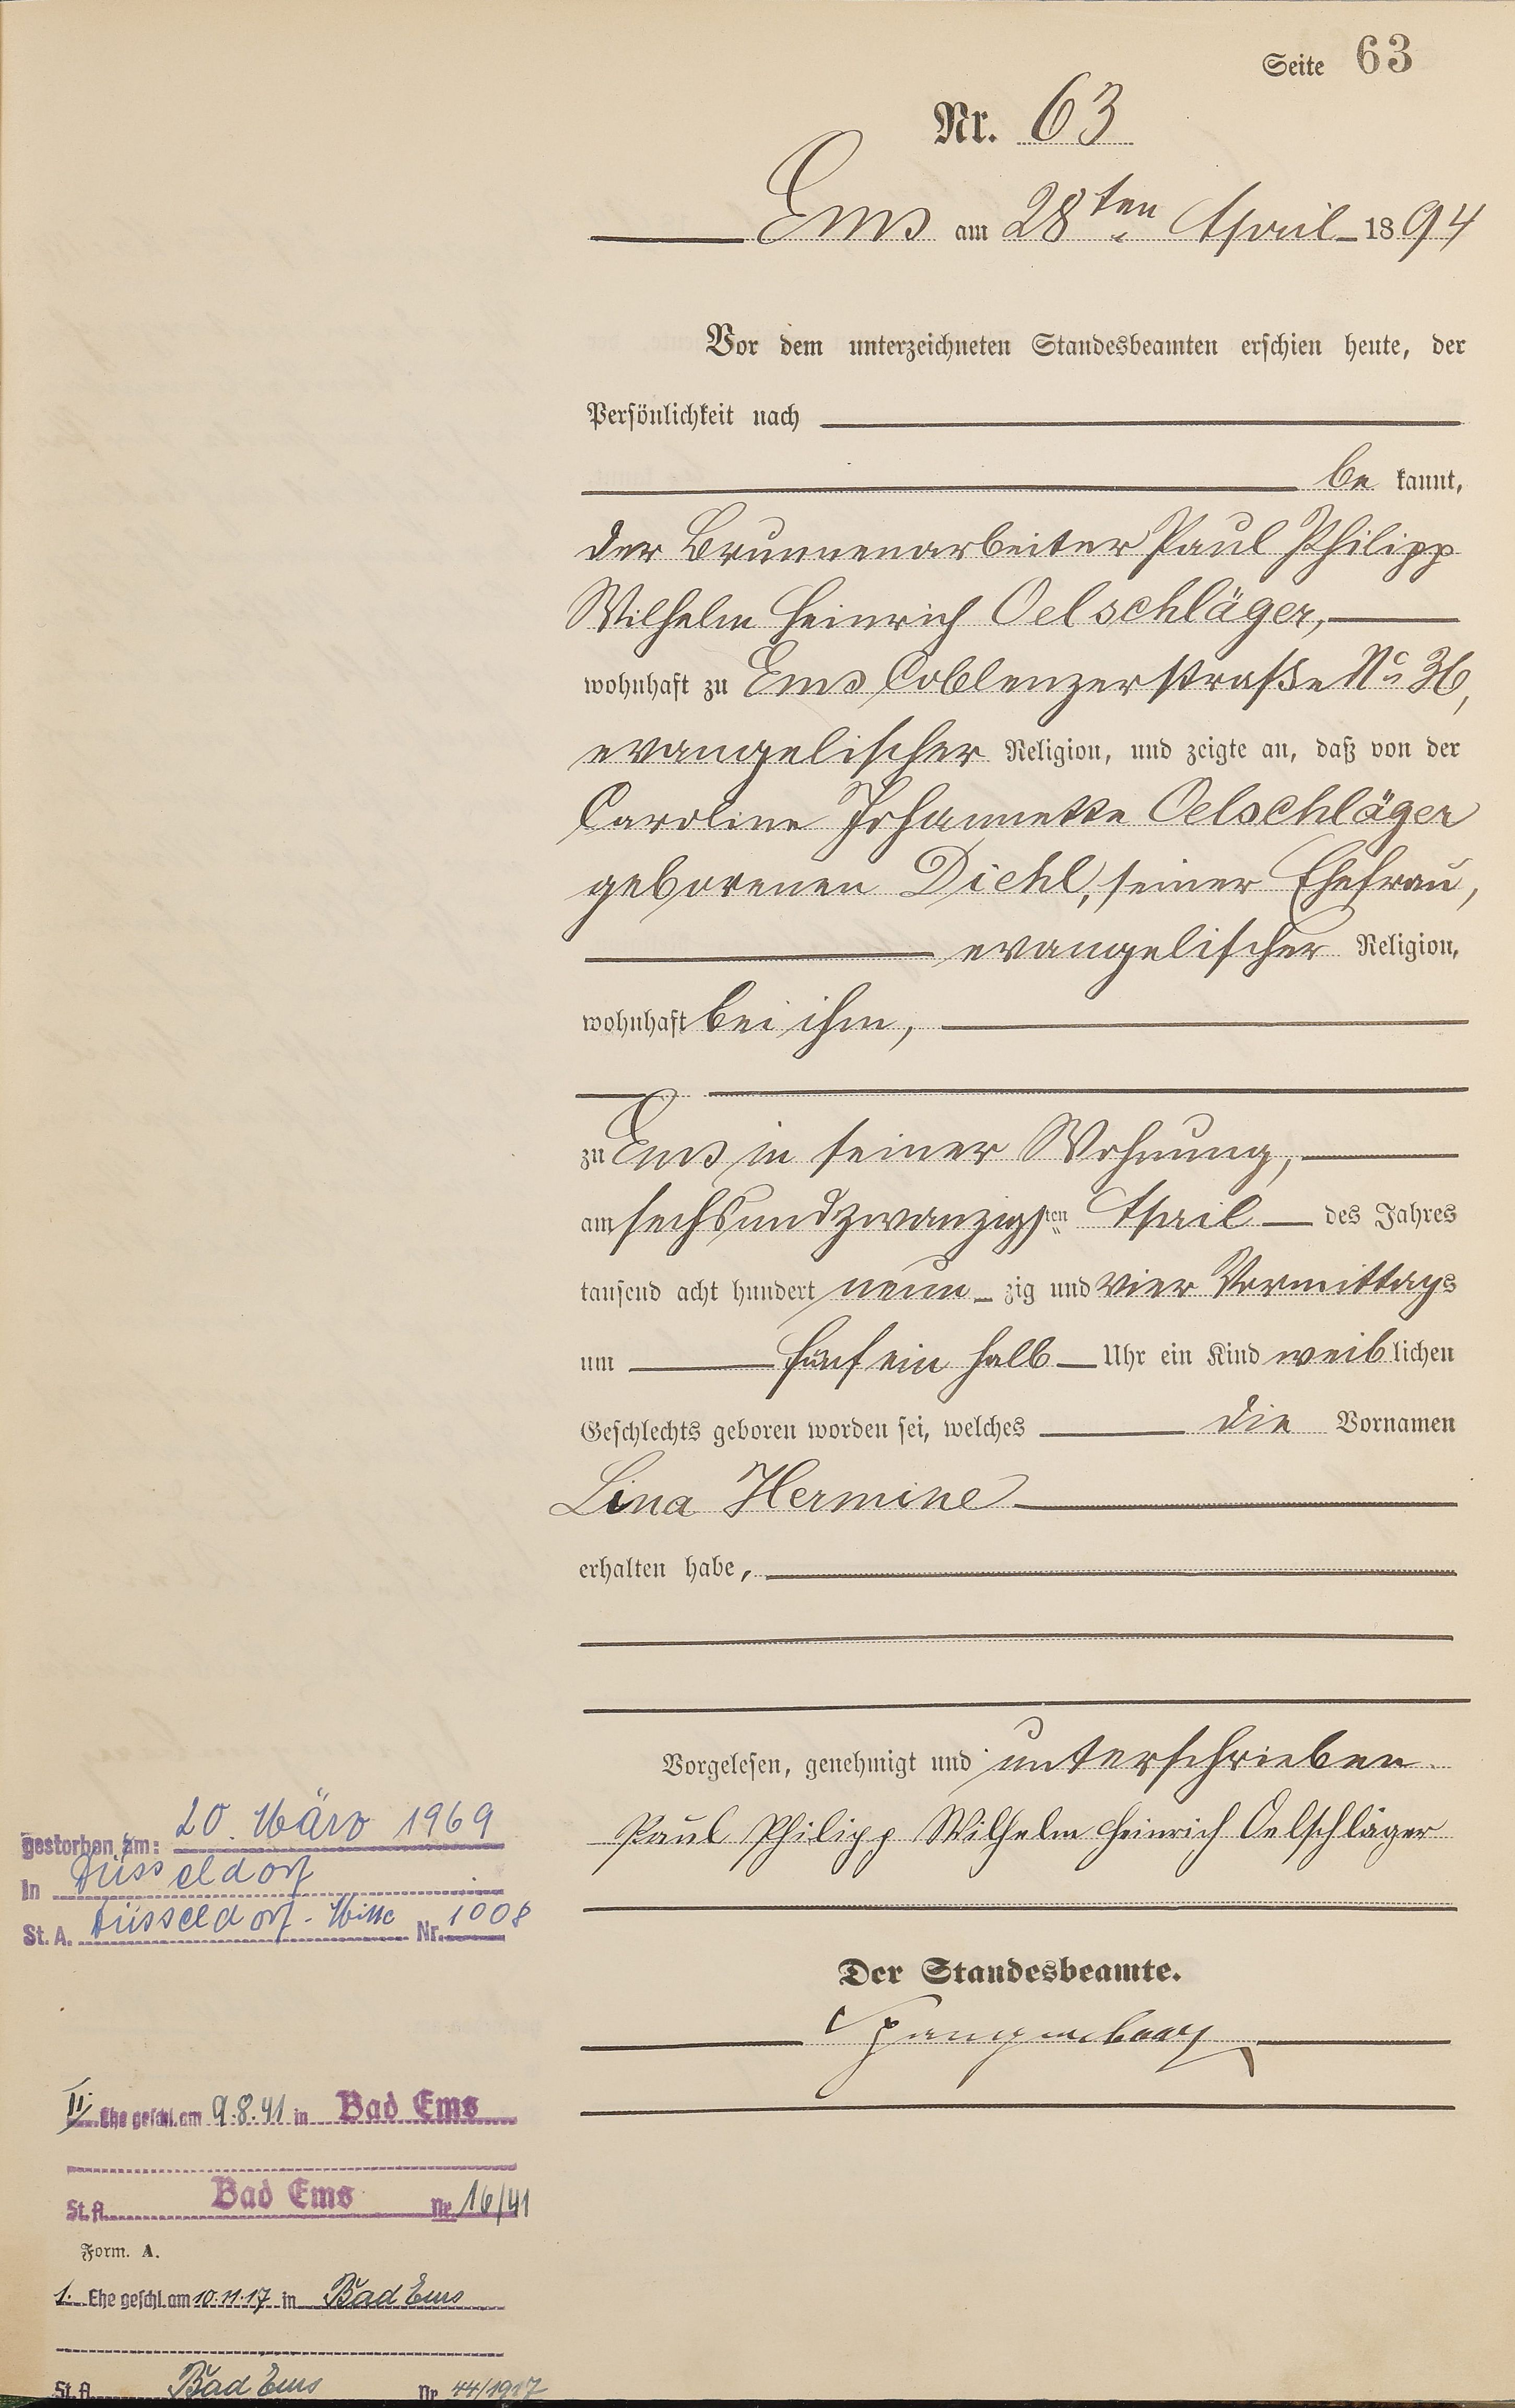 Seite 63
Nr. 63
Ems am 28ten April 1894
Vor dem unterzeichneten Standesbeamten erschien heute, der
Persönlichkeit nach
be kannt,
der Brunnenarbeiter Paul Philipp
Wilhelm Heinrich Oelschläger,
wohnhaft zu Ems Coblenzerstraße No 36,
evangelischer Religion, und zeigte an, daß von der
Caroline Johannette Oelschläger
geborenen Diehl, seiner Ehefrau,
evangelischer Religion,
wohnhaft bei ihm,
zu Ems in seiner Wohnung,
am sechsundzwanzigsten April des Jahres
tausend acht hundert neun zig und vier Vormittags
um fünf ein halb Uhr ein Kind weiblichen
Geschlechts geboren worden sei, welches die Vornamen
Lina Hermine
erhalten habe,
Vorgelesen, genehmigt und unterschrieben.
Paul Philipp Wilhelm Heinrich Oelschläger
Der Standesbeamte.
Spangenberg
gestorben am: 20. März 1969
in Düsseldorf
St. A. Düsseldorf-Mitte Nr. 1008
II. Ehe geschl. am 9.8.41 in Bad Ems
St. A. Bad Ems Nr. 16/41
Form. A.
1. Ehe geschl. am 10.11.17 in Bad Ems
St. A. Bad Ems Nr. 44/1917